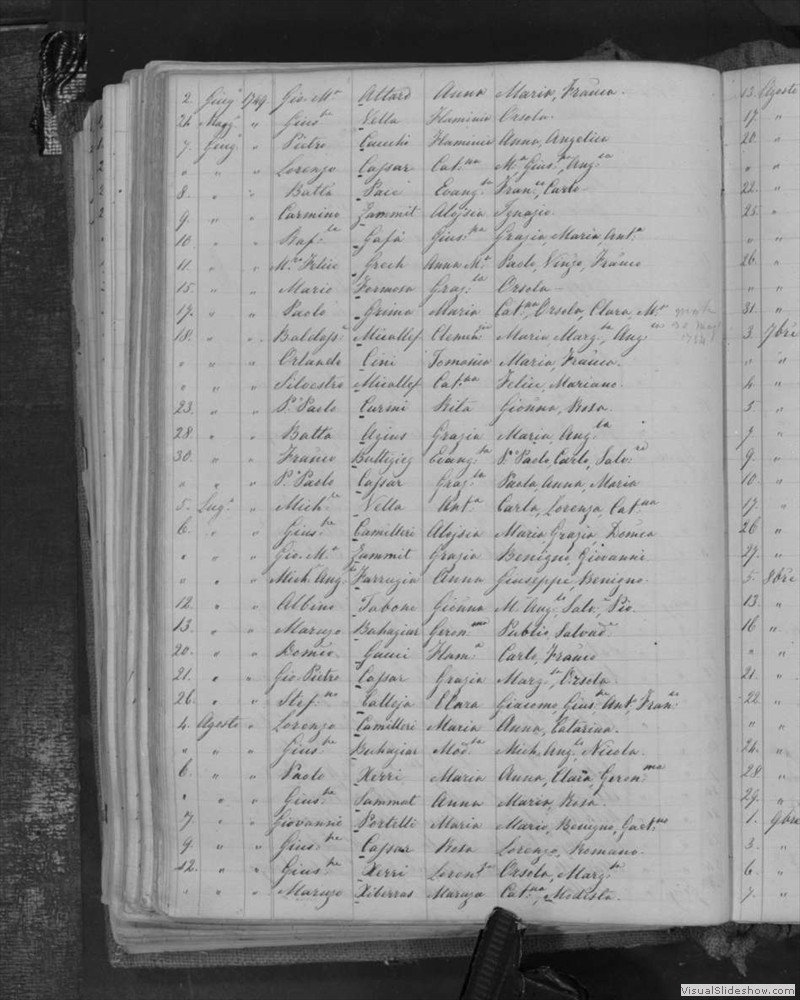 2. Giugº 1749 Gio. Mª Attard Anna Maria, Franca.
26 Maggº " Giusᵖᵉ Vella Flaminia Orsola.
7. Giugº " Pietro Cauchi Flaminia Anna, Angelica
" " " Lorenzo Cassar Catⁿᵃ Mª Giusᵖᵃ, Angᶜᵃ
8. " " Batta Pace Evangᵗᵃ Franᶜᵒ, Carlo
9. " " Carmino Zammit Aloysia Ignazio.
10. " " Rafˡᵉ Gafà Giusᵖᵖᵃ Grazia, Maria, Antª
11. " " Felice Grech Anna Mª Paolo, Vinzº, Franco
15. " " Mario Formosa Grazˡᵃ Orsola
17. " " Paolo Grima Maria Catⁿᵃ, Orsola, Clara, Mª
18. " " Baldassᵉ Micallef Clemᶻᵃ Maria Margᵗᵃ, Angᶜᵃ
" " " Orlando Cini Tomasica Maria, Franca.
" " " Silvestro Micallef Catⁿᵃ Felice, Mariano.
23. " " Pº Paolo Curmi Rita Gioanna, Rosa.
28. " " Batta Agius Grazia Maria, Angˡᵃ
30. " " Franco Buttigieg Evangᵗᵃ Pº Paolo, Carlo, Salvʳᵉ
" " " Pº Paolo Cassar Grazˡᵃ Paola, Anna, Maria
5. Lugº " Michˡᵉ Vella Antª Carlo, Lorenza, Catⁿᵃ
6. " " Giusᵖᵉ Camilleri Aloysia Maria Grazia, Domca
" " " Gio. Mª Zammit Grazia Benigno, Giovanni.
" " " Mich. Angº Farrugia Anna Giuseppe, Benigno.
12. " " Albino Tabone Gioanna M. Angº, Salvᵉ, Pio.
13. " " Maruzo Buhagiar Geronᵐᵃ Publio, Salvadᵉ
20. " " Domco Gauci Flamª Carlo, Franco
21. " " Gio Pietro Cassar Grazia Margᵗᵃ, Orsola.
26. " " Stefⁿᵒ Calleja Clara Giacomo, Giusᵖᵉ Antº, Franᶜᵒ
4. Agosto " Lorenzo Camilleri Maria Anna, Catarina.
" " " Giusᵖᵉ Buhagiar Modᵗᵃ Mich. Angº, Nicola.
6. " " Paolo Xerri Maria Anna, Clara, Geronᵐᵃ
" " " Giusᵖᵉ Sammut Anna Maria, Rosa.
7. " " Giovanni Portelli Maria Mario, Benigno, Gaetⁿᵒ
9. " " Giusᵖᵉ Cassar Rosa Lorenzo, Romano.
12. " " Giusᵖᵉ Xerri Lorenᶻᵃ Orsola, Margᵗᵃ
" " " Maruzo Xiberras Maruza Catⁿᵃ, Modesta.
13. Agosto
17. "
20. "
" "
22. "
25. "
" "
26. "
" "
31. "
3. 7bre
" "
4 "
5 "
7 "
9. "
10. "
17. "
26 "
27. "
5. 8bre
13. "
16 "
" "
21. "
22. "
" "
24. "
28 "
29. "
1. 9bre
3. "
6. "
7. "
VisualSlideshow.com